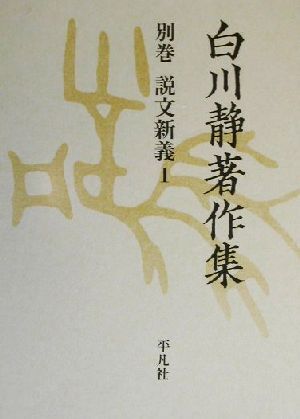 白川静著作集
別巻 説文新義 1
平凡社